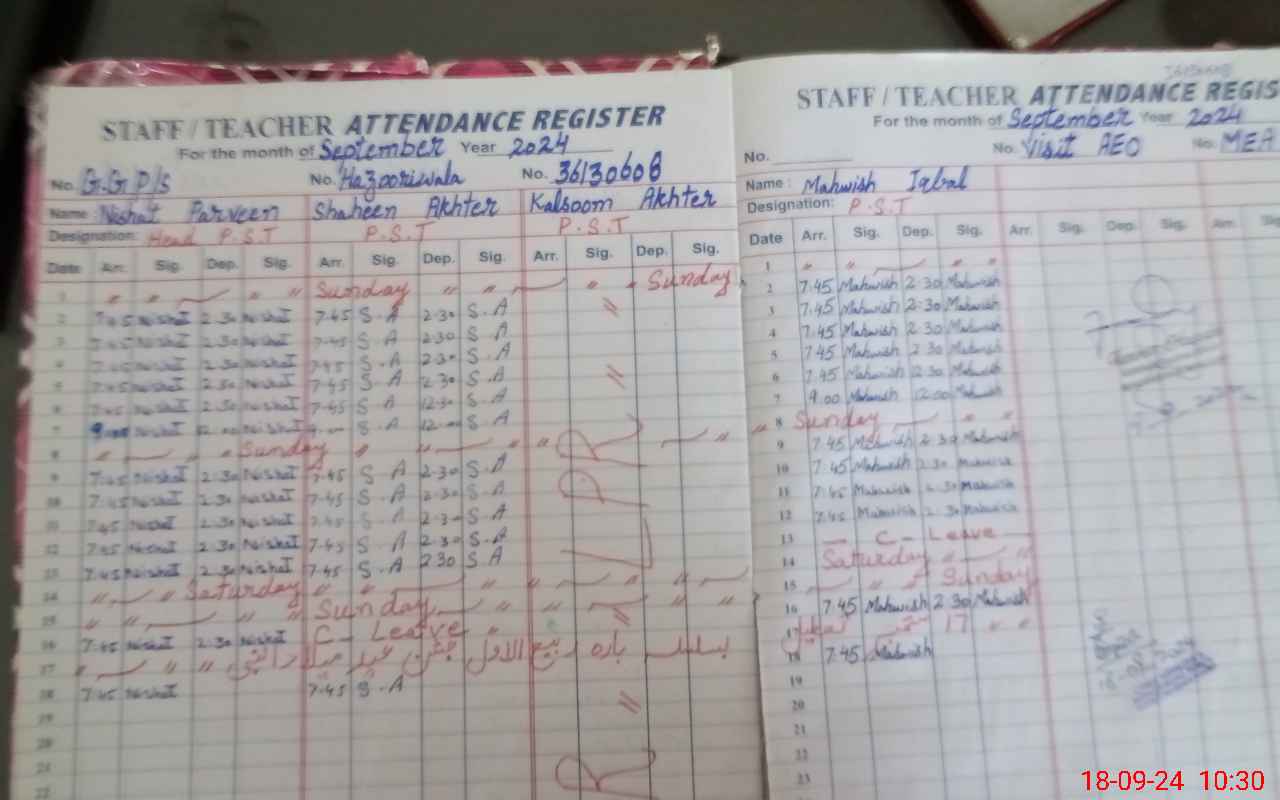 STAFF / TEACHER ATTENDANCE REGISTER
For the month of September Year 2024
No. G.G P/s No. Hazooriwala No. 36130608
Name Nishat Parveen Shaheen Akhter Kalsoom Akhter
Designation: Head P.S.T P.S.T P.S.T
Date Arr. Sig. Dep. Sig. Arr. Sig. Dep. Sig. Arr. Sig. Dep. Sig.
1 " " " " Sunday " " " " Sunday
2 7.45 Nishat 2.30 Nishat 7.45 S.A 2.30 S.A
3 7.45 Nishat 2.30 Nishat 7.45 S.A 2.30 S.A
4 7.45 Nishat 2.30 Nishat 7.45 S.A 2.30 S.A
5 7.45 Nishat 2.30 Nishat 7.45 S.A 2.30 S.A
6 7.45 Nishat 7.45 S.A 12.30 S.A
7 9.00 Nishat 12.00 Nishat S.A 12.00 S.A
8 " " " Sunday " " " "
9 7.45 Nishat 2.30 Nishat 7.45 S.A 2.30 S.A
10 7.45 Nishat 2.30 Nishat 7.45 S.A 2.30 S.A
11 7.45 Nishat 2.30 Nishat 7.45 S.A 2.30 S.A
12 7.45 Nishat 2.30 Nishat 7.45 S.A 2.30 S.A
13 7.45 Nishat 2.30 Nishat 7.45 S.A 2.30 S.A
14 " " Saturday " " " " " "
15 " " " Sunday " " " " "
16 7.45 Nishat 2.30 Nishat C- Leave "
17 " " " " بسلسلہ بارہ ربیع الاول جشن عید میلاد النبی
18 7.45 Nishat 7.45 S.A
19
20
21
22
STAFF / TEACHER ATTENDANCE REGIS
For the month of September Year 2024
No. No. Visit AEO No. MEA
Name: Mahwish Iqbal
Designation: P.S.T
Date Arr. Sig. Dep. Sig. Arr. Sig. Dep. Sig. Arr. Sig
1 " " " "
2 7.45 Mahwish 2.30 Mahwish
3 7.45 Mahwish 2.30 Mahwish
4 7.45 Mahwish 2.30 Mahwish
5 7.45 Mahwish 2.30 Mahwish
6 7.45 Mahwish 12.30 Mahwish
7 9.00 Mahwish 12.00 Mahwish
8 Sunday " "
9 7.45 Mahwish 2.30 Mahwish
10 7.45 Mahwish 2.30 Mahwish
11 7.45 Mahwish 2.30 Mahwish
12 7.45 Mahwish 2.30 Mahwish
13 C- Leave
14 Saturday " "
15 " " Sunday
16 7.45 Mahwish 2.30 Mahwish
17 17 ستمبر تعطیل " "
18 7.45 Mahwish
19
20
21
22
23
18-09-24 10:30